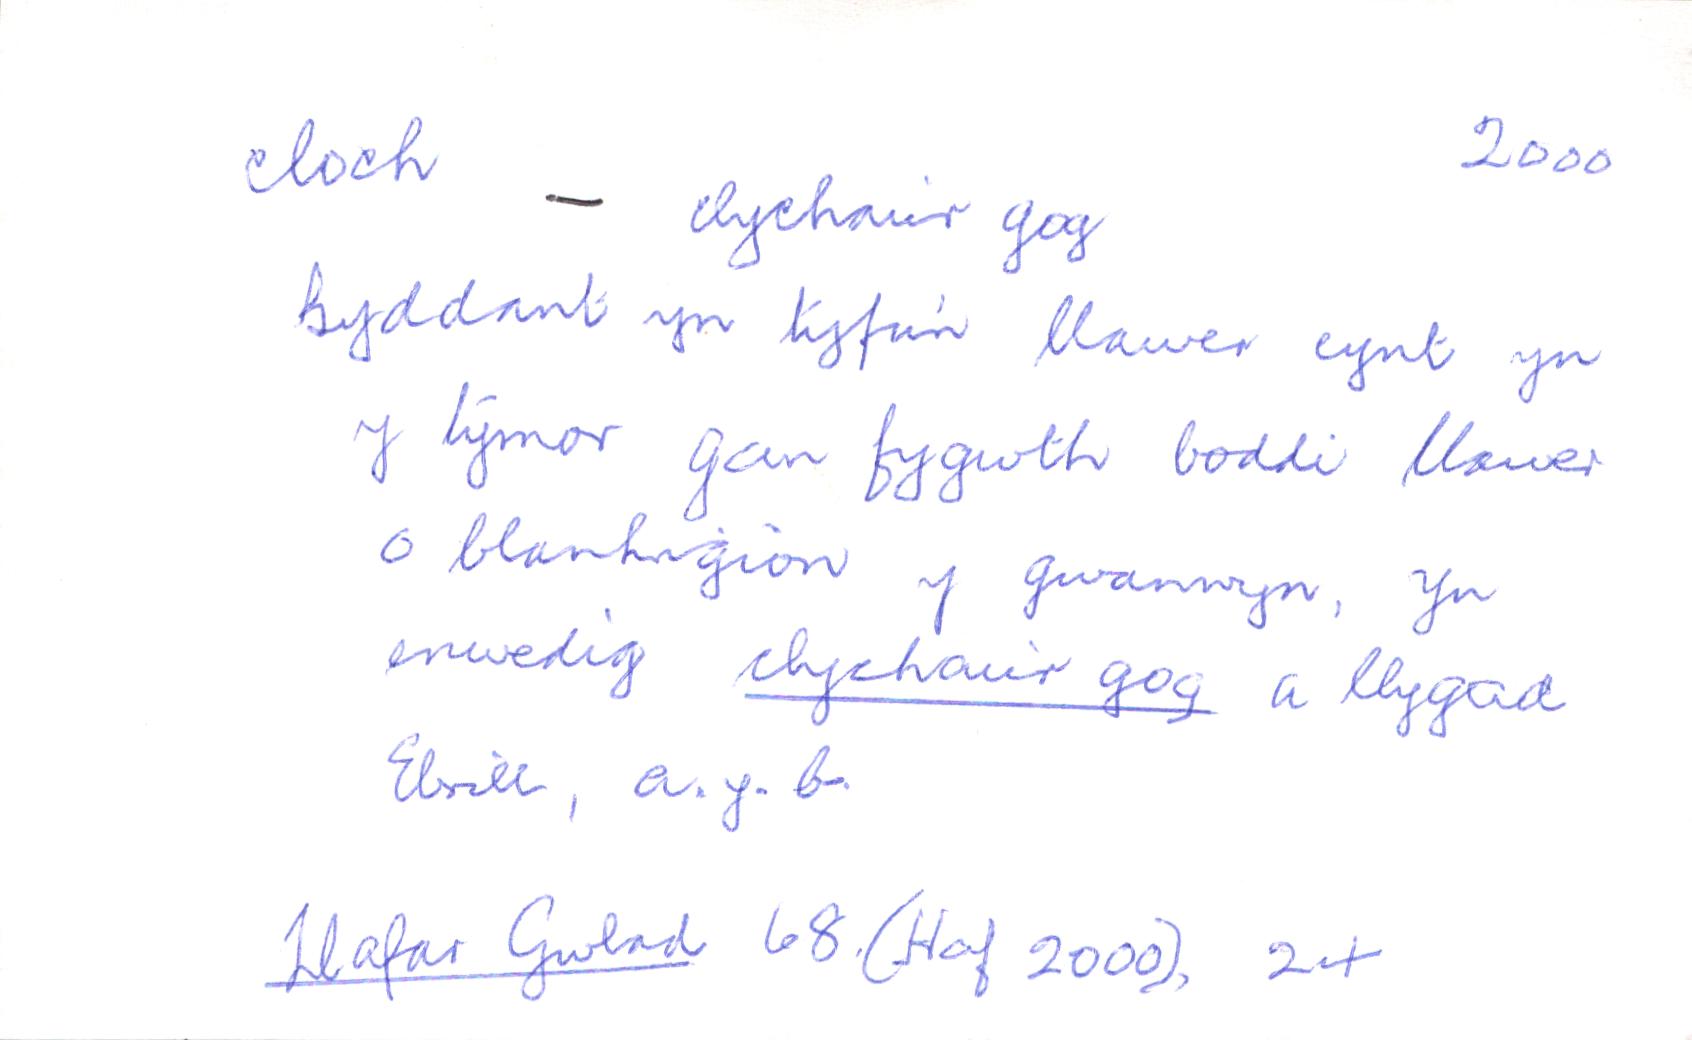 cloch 2000
– clychau'r gog
Byddant yn tyfu'n llawer cynt yn
y tymor gan fygwth boddi llawer
o blanhigion y gwanwyn, yn
enwedig clychau'r gog a llygad
Ebrill, a.y.b.
Llafar Gwlad 68 (Haf 2000), 24